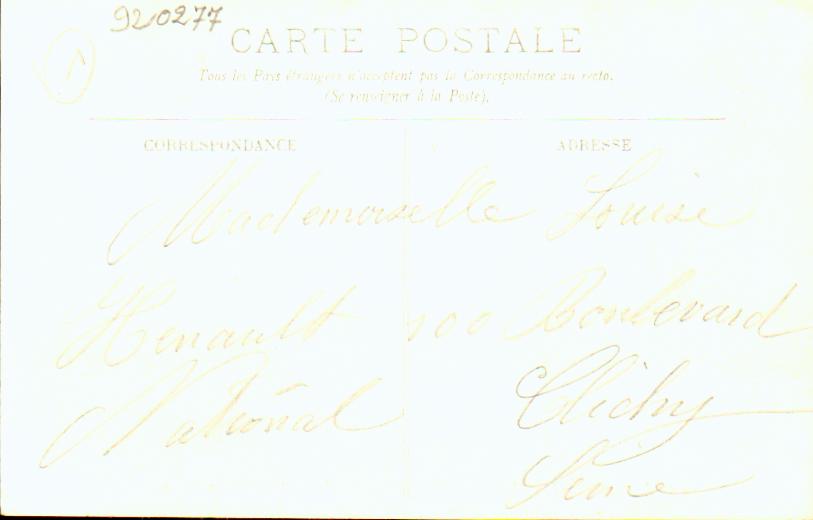 920277
1
CARTE POSTALE
Tous les Pays étrangers n'acceptent pas la Correspondance au recto.
(Se renseigner à la Poste).
CORRESPONDANCE ADRESSE
Mademoiselle Louise
Henault 100 Boulevard
National Clichy
Seine